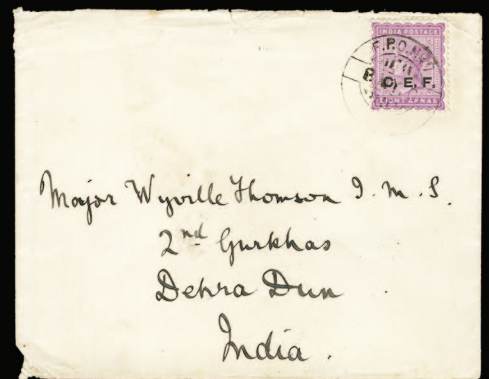 INDIA POSTAGE
F.P.O. No. 1
C. E. F.
EIGHT ANNAS
Major Wyville Thomson I. M. S.
2nd Gurkhas
Dehra Dun
India.